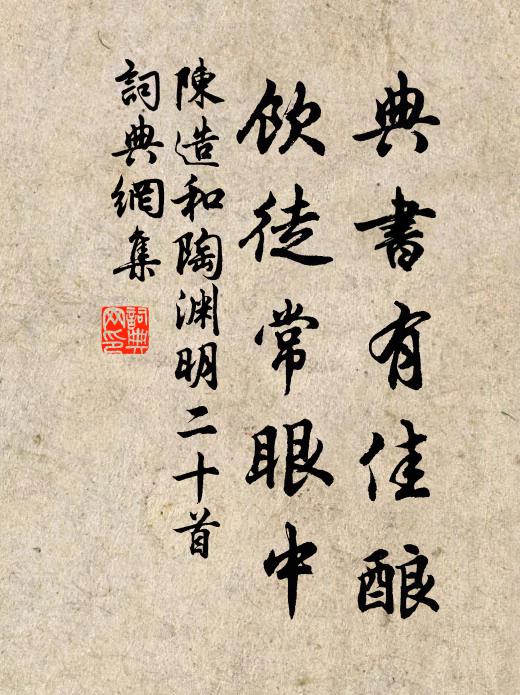 典書有佳酿
飲徒常眼中
陳造和陶渊明二十首
詞典網集
詞典網印